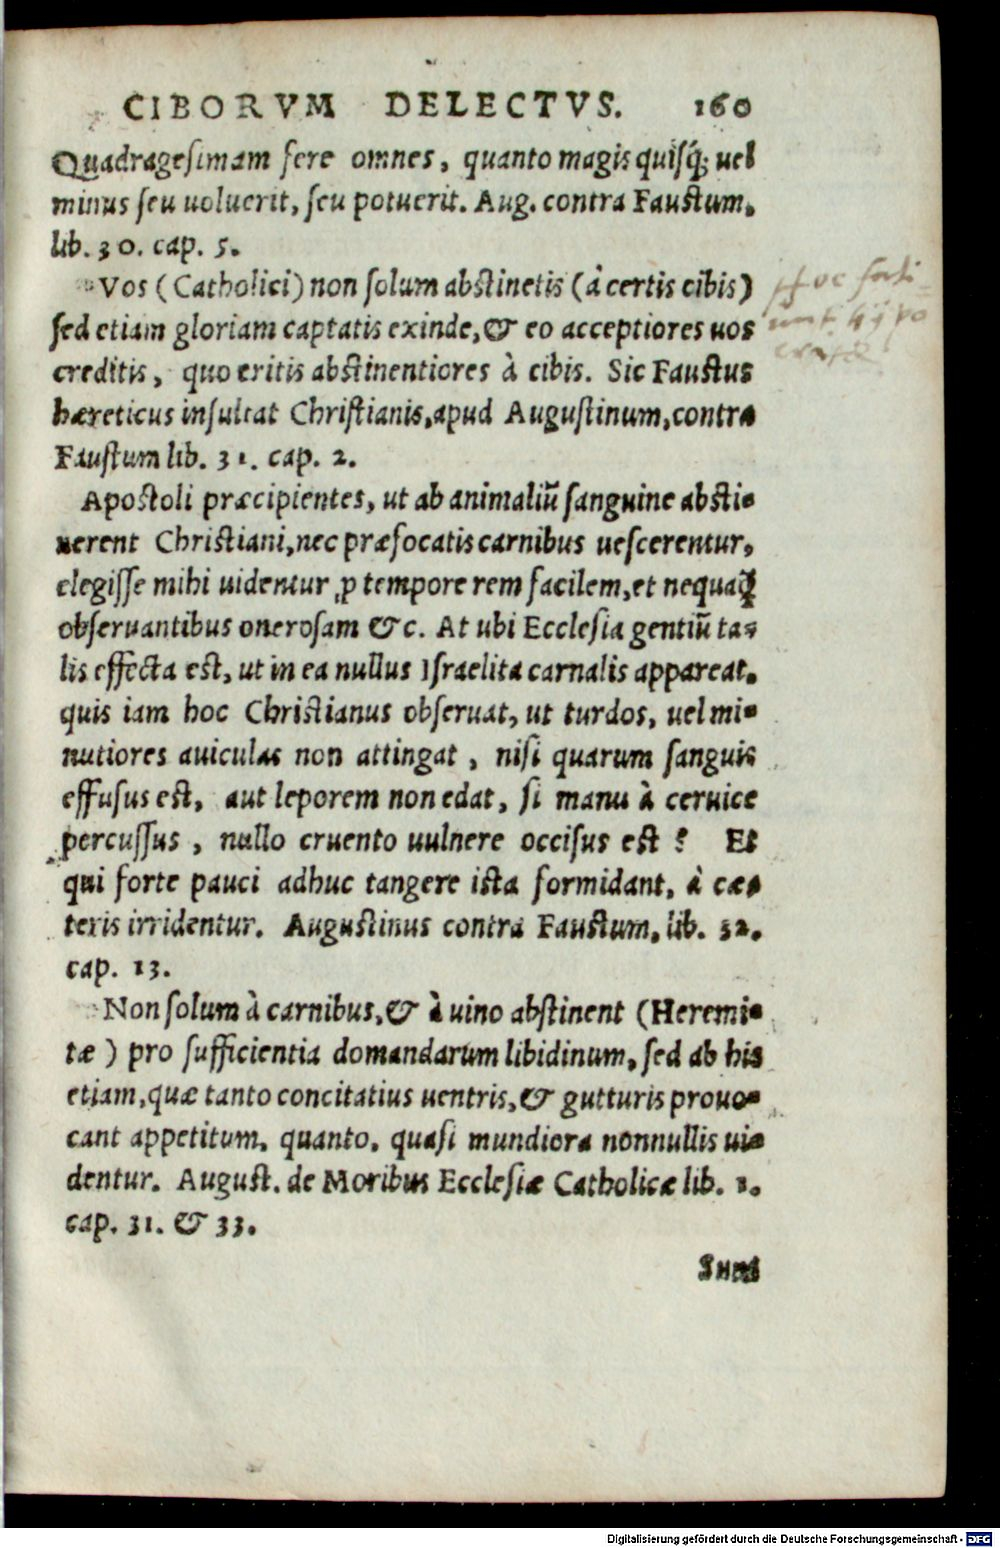 CIBORVM DELECTVS. 160
Quadragesimam fere omnes, quanto magis quisq́; uel
minus seu uoluerit, seu potuerit. Aug. contra Faustum,
lib. 30. cap. 5.
Vos (Catholici) non solum abstinetis (à certis cibis)
sed etiam gloriam captatis exinde, & eo acceptiores uos
creditis, quo eritis abstinentiores à cibis. Sic Faustus
hæreticus insultat Christianis, apud Augustinum, contra
Faustum lib. 31. cap. 2.
Apostoli præcipientes, ut ab animaliū sanguine absti-
nerent Christiani, nec præfocatis carnibus uescerentur,
elegisse mihi uidentur ꝓ tempore rem facilem, et nequaꝗ̃
obseruantibus onerosam &c. At ubi Ecclesia gentiū ta-
lis effecta est, ut in ea nullus Israelita carnalis appareat.
quis iam hoc Christianus obseruat, ut turdos, uel mi-
nutiores auiculas non attingat, nisi quarum sanguis
effusus est, aut leporem non edat, si manu à ceruice
percussus, nullo cruento uulnere occisus est? Et
qui forte pauci adhuc tangere ista formidant, à cæ-
teris irridentur. Augustinus contra Faustum, lib. 32.
cap. 13.
Non solum à carnibus, & à uino abstinent (Heremi-
tæ) pro sufficientia domandarum libidinum, sed ab his
etiam, quæ tanto concitatius uentris, & gutturis prouo-
cant appetitum, quanto, quasi mundiora nonnullis ui-
dentur. August. de Moribus Ecclesiæ Catholicæ lib. 1.
cap. 31. & 33.
Sunt
Hoc
Digitalisierung gefördert durch die Deutsche Forschungsgemeinschaft - DFG